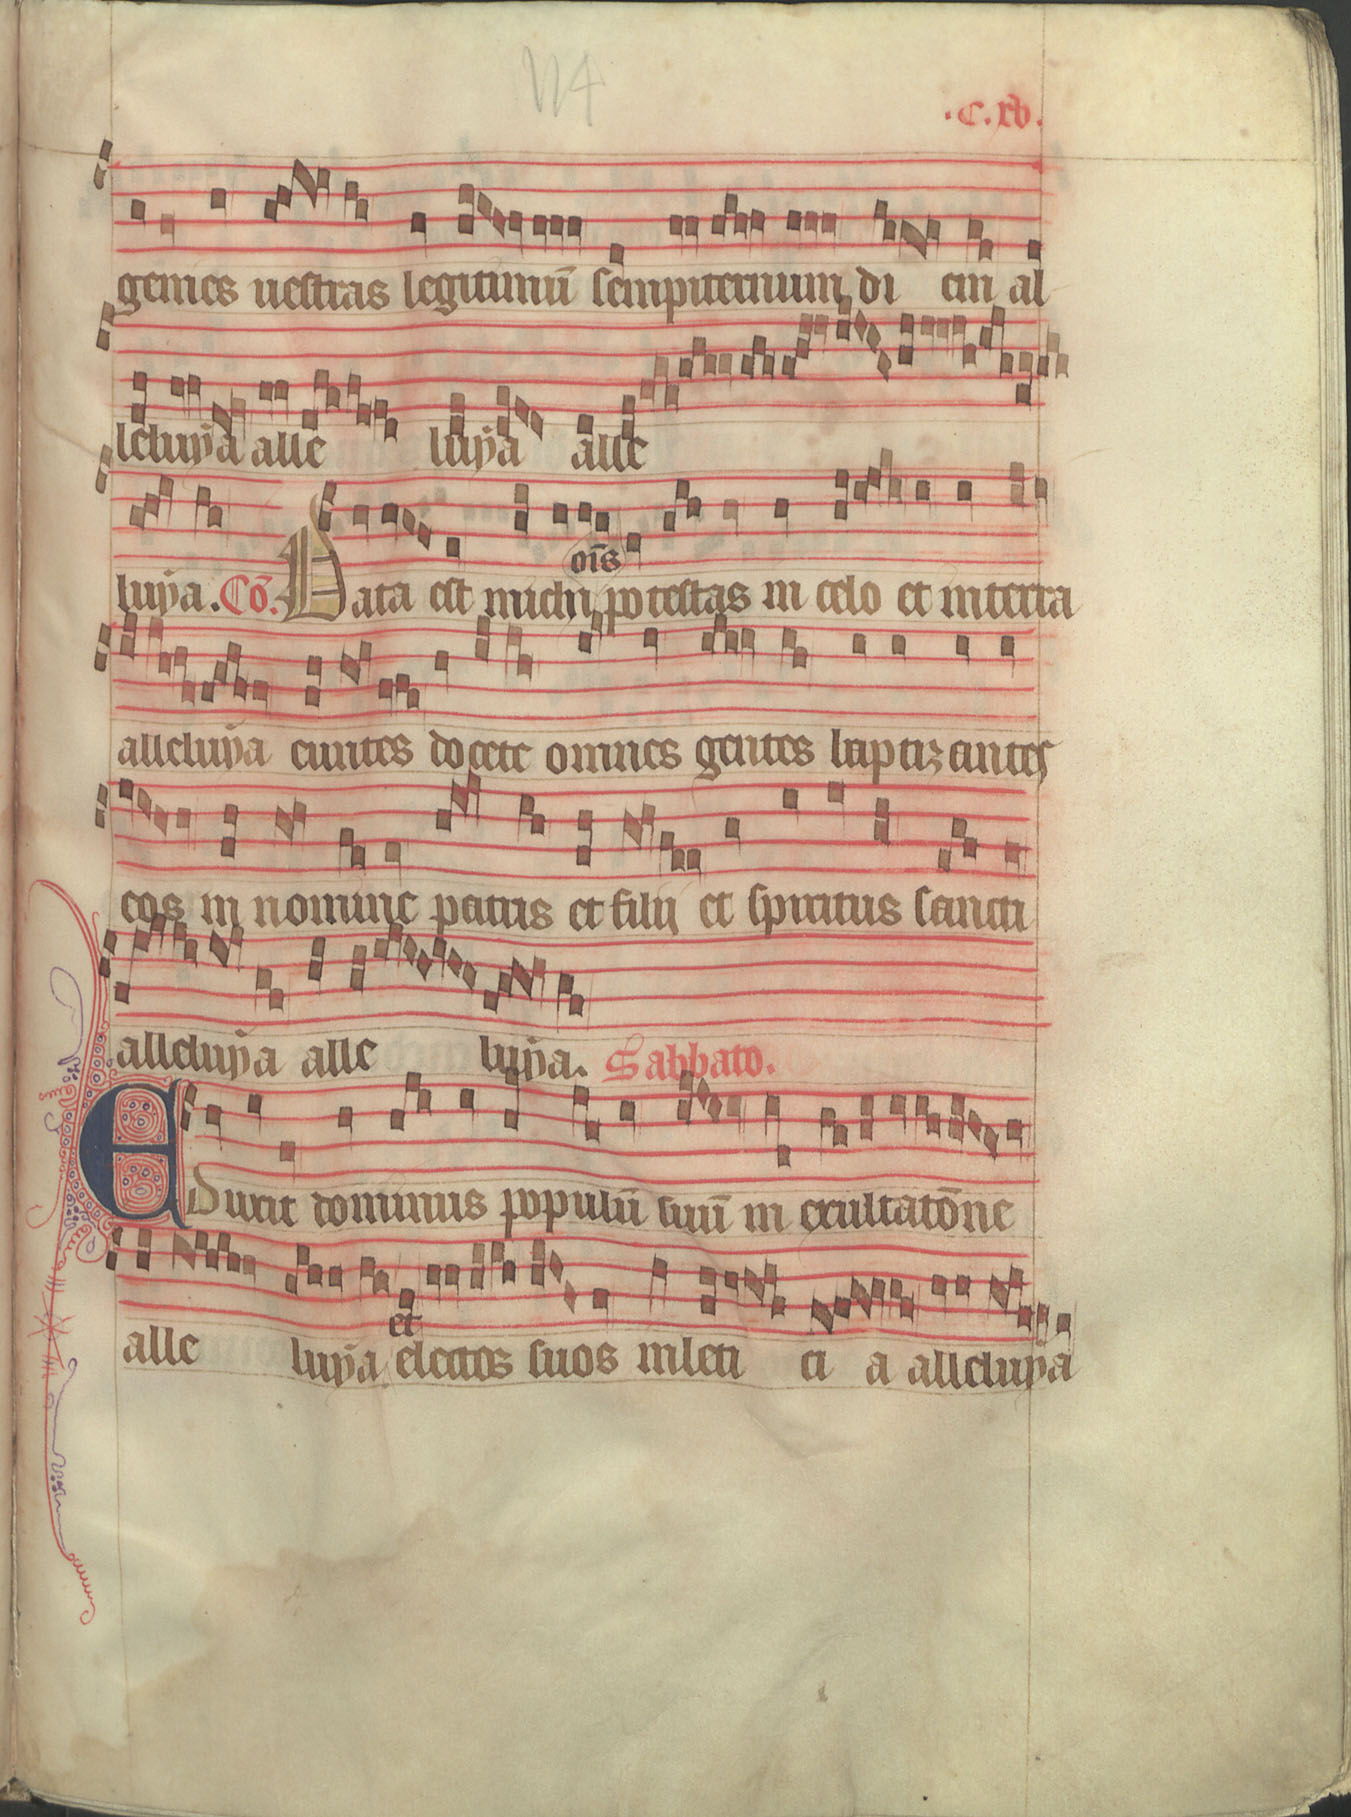 114
.C.xv.
genies uestras legitimū sempiternum di em al
leluya alle luya alle
oīs
luya. Cō. Data est michi potestas in celo et in terra
alleluya euntes docete omnes gentes baptizantes
eos in nomine patris et filij et spiritus sancti
alleluya alle luya. Sabbato.
Eduxit dominus populū suū in exultatōne
et
alle luya electos suos in leti ci a alleluya